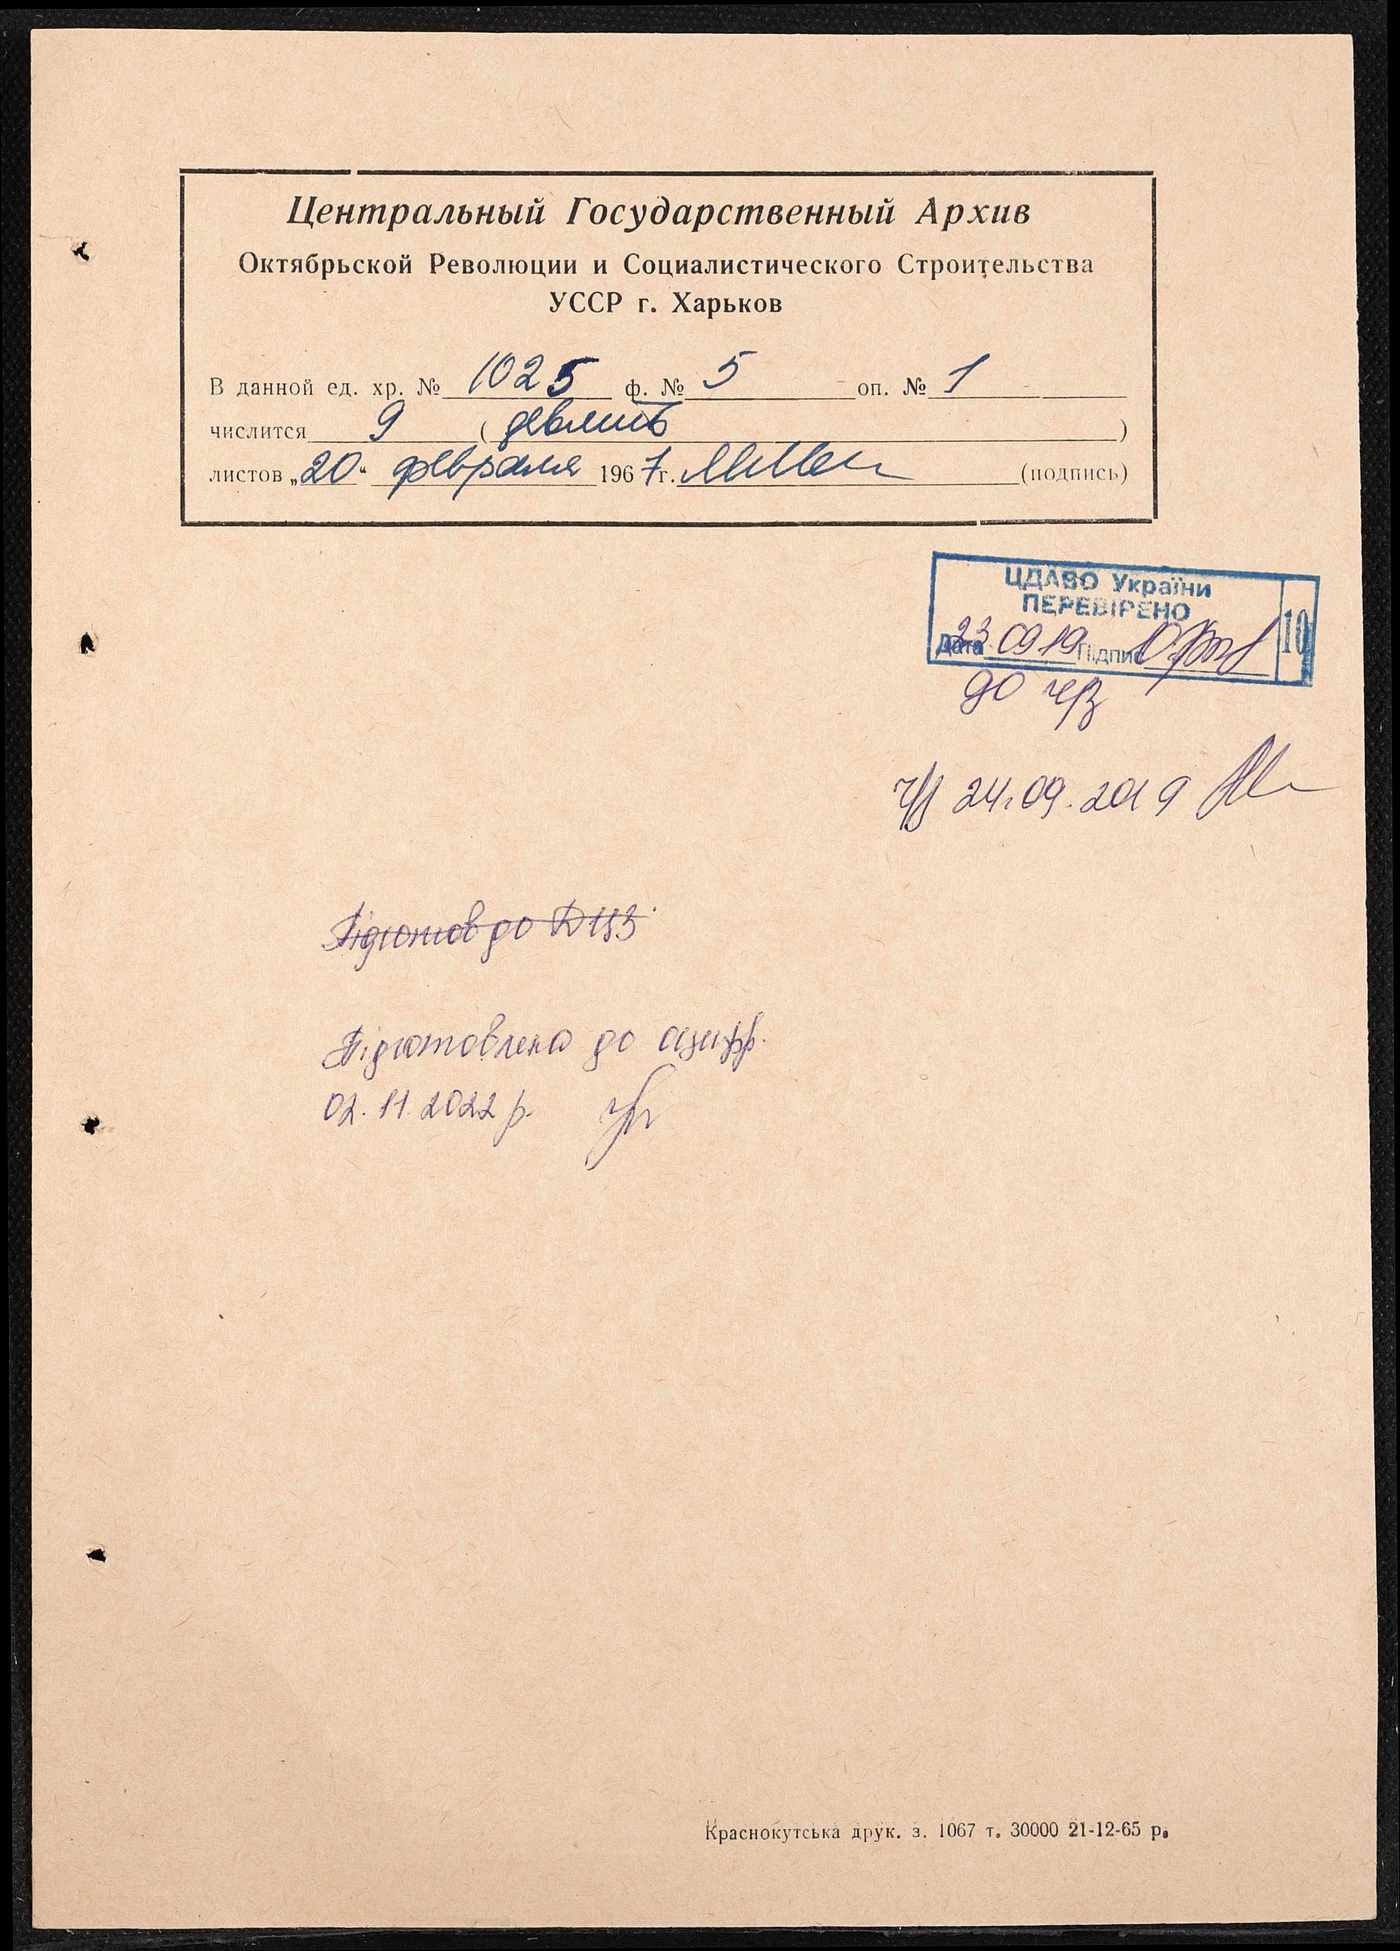 Центральный Государственный Архив
Октябрьской Революции и Социалистического Строительства
УССР г. Харьков
В данной ед. хр. № 1025 ф. № 5 оп. № 1
числится 9 ( девять )
листов „20“ февраля 1967 г. (подпись)
ЦДАВО України
ПЕРЕВІРЕНО
Дата 23.09.19 Підпис 10
до ч/з
ч/з 24.09.2019
Підготов до
Підготовлено до оцифр.
02.11.2022 р.
Краснокутська друк. з. 1067 т. 30000 21-12-65 р.